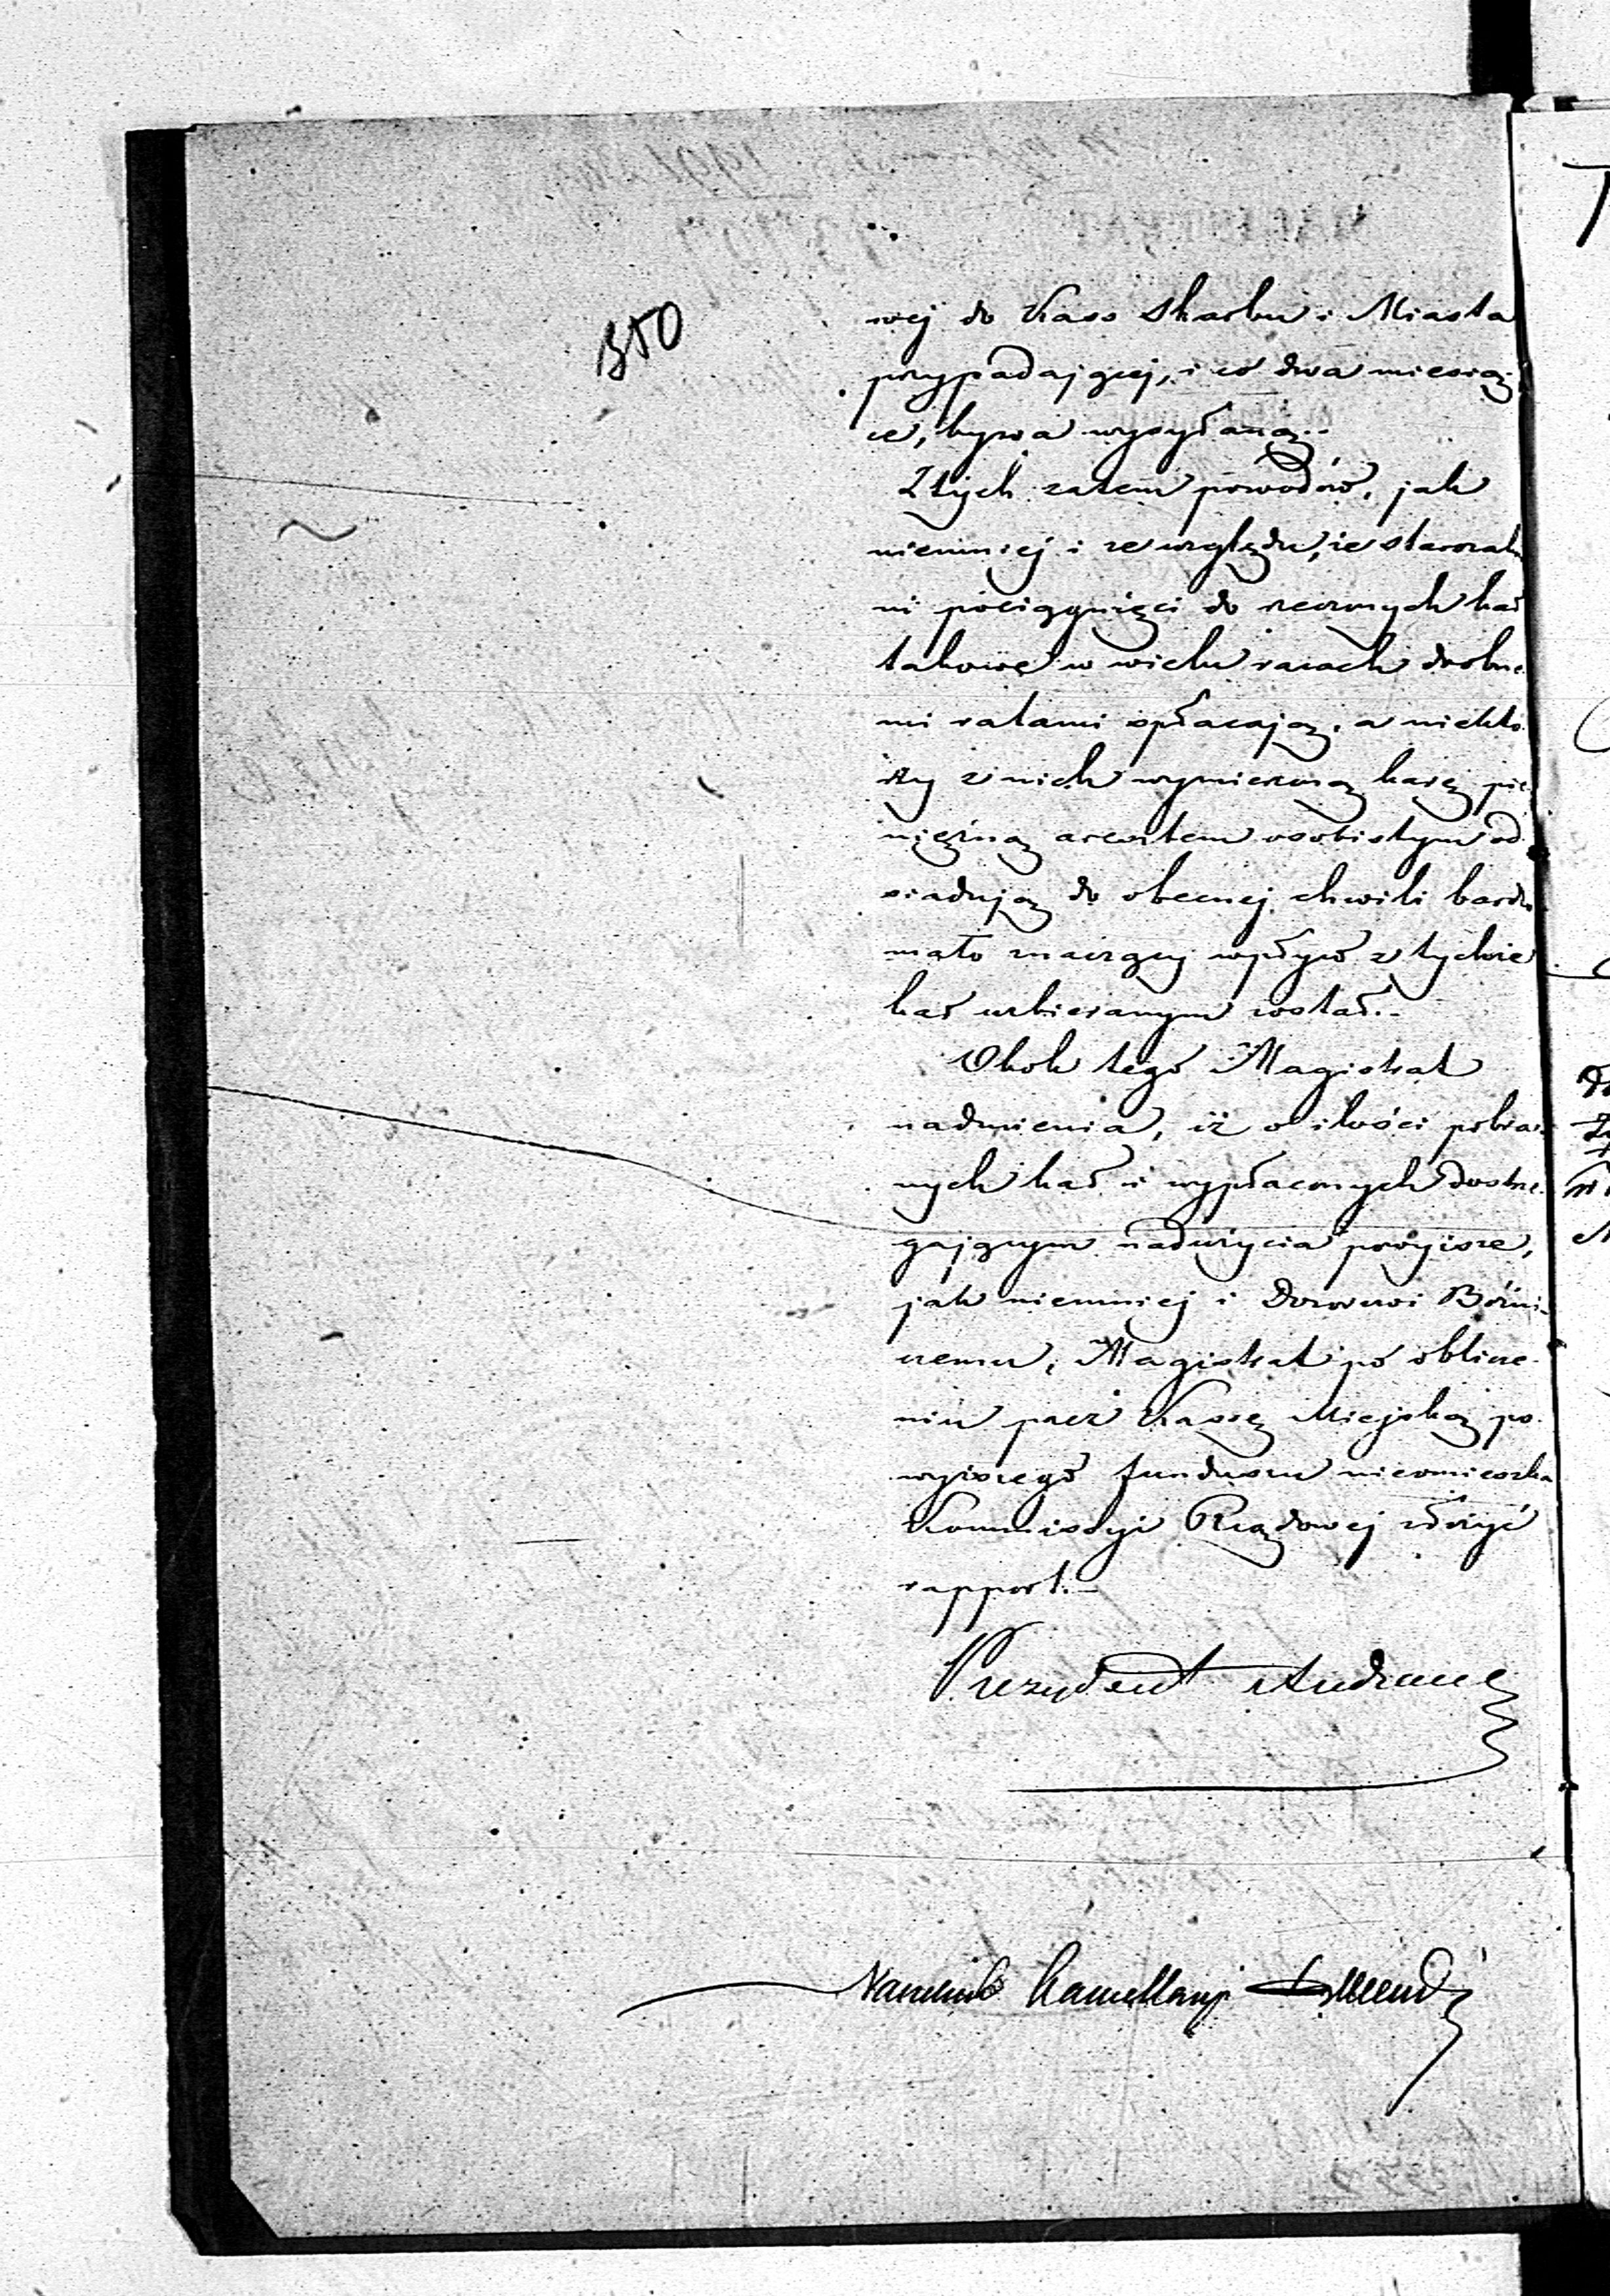 350
wej do Kass Skarbu i Miasta
przypadającej, i co dwa miesią-
ce, bywa wysyłaną.-
Z tych zatem powodów, jak
niemniej i ze względu, że starozak
ni pociągnięci do rzeczonych kar
takowe w wielu razach drobne
mi ratami spłacają, a niektó
rzy z nich wymierzoną karę pie
niężną aresztem osobistym od
siadują do obecnej chwili bardzo
mało znaczący wpływ z tychże
kar uzbieranym został.-
Obok tego Magistrat
nadmienia, iż o ilości pobra-
nych kar i wypłaconych dostrze-
gającym nadużycia powyższe,
jak niemniej i Dozorowi Bóżni-
czemu, Magistrat po oblicze-
niu przez Kassę Miejską po-
wyższego funduszu nieomieszka
Kommissyi Rządowej złożyć
rapport.-
Prezydent
Naczelnik Kancellaryi